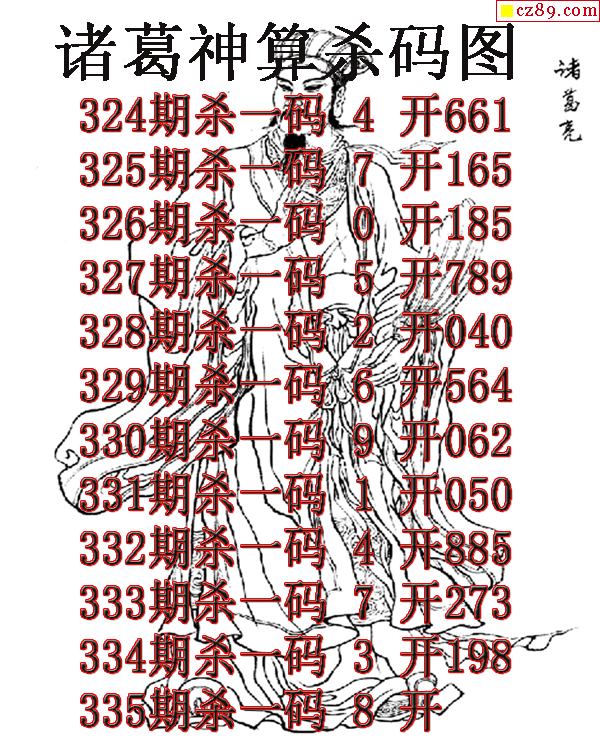 cz89.com
诸葛神算杀码图
诸葛亮
324期杀一码 4 开661
325期杀一码 7 开165
326期杀一码 0 开185
327期杀一码 5 开789
328期杀一码 2 开040
329期杀一码 6 开564
330期杀一码 9 开062
331期杀一码 1 开050
332期杀一码 4 开885
333期杀一码 7 开273
334期杀一码 3 开198
335期杀一码 8 开